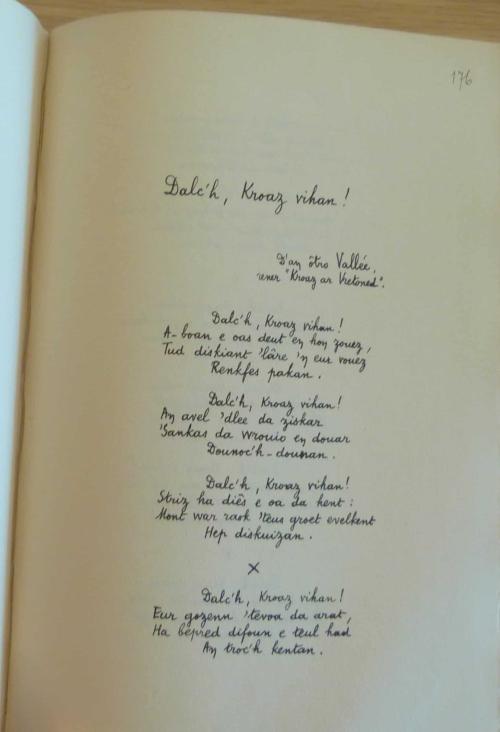 176
Dalc'h, Kroaz vihan !
D'an ôtro Vallée,
rener "Kroaz ar Vretoned".
Dalc'h, Kroaz vihan !
A-boan e oas deut en hon zouez,
Tud diskiant 'lâre 'n eur vouez
Renkfes pakan.
Dalc'h, Kroaz vihan !
An avel 'dlee da ziskar
'Sankas da wrouio en douar
Dounoc'h-dounan.
Dalc'h, Kroaz vihan !
Striz ha diês e oa da hent :
Mont war raok 'teus groet evelkent
Hep diskuizan.
×
Dalc'h, Kroaz vihan !
Eur gozenn 'tevoa da arat,
Ha bepred difoun e teul had
An troc'h kentan.